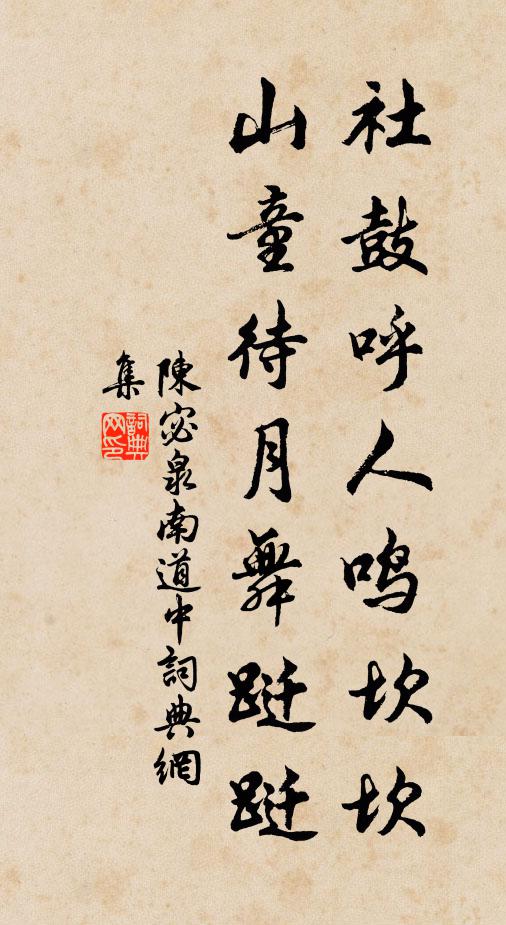 社鼓呼人鸣坎坎
山童待月舞跹跹
陳宓泉南道中詞典網
集
詞典
网印